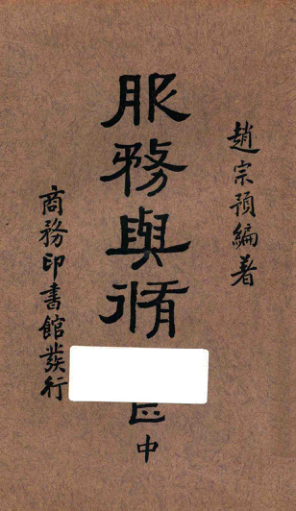 趙宗預編著
服務與脩
中
商務印書館發行